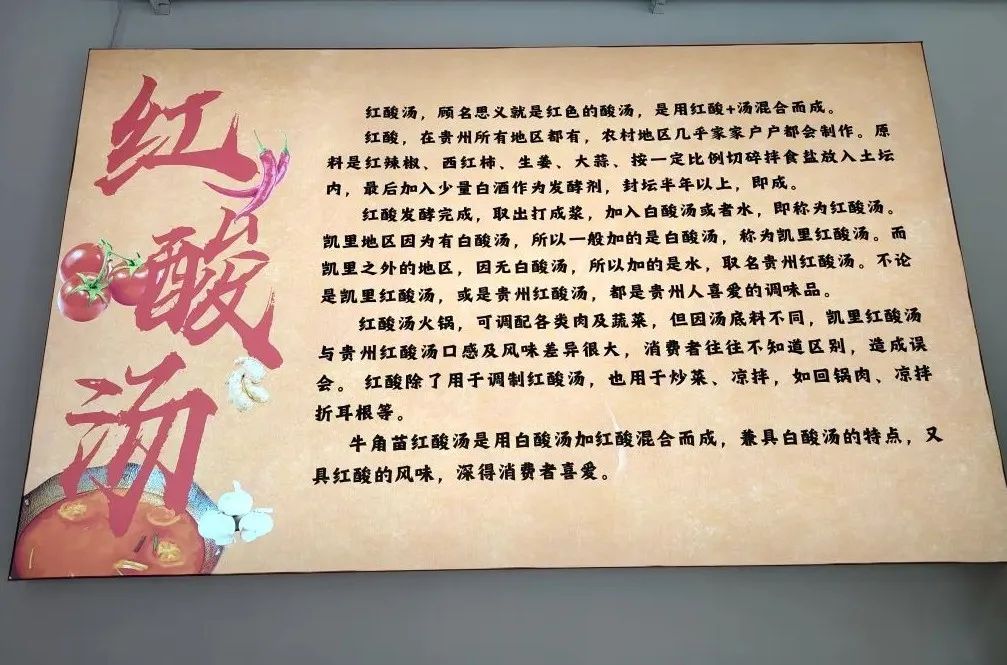 红酸汤
红酸汤，顾名思义就是红色的酸汤，是用红酸+汤混合而成。
红酸，在贵州所有地区都有，农村地区几乎家家户户都会制作。原
料是红辣椒、西红柿、生姜、大蒜、按一定比例切碎拌食盐放入土坛
内，最后加入少量白酒作为发酵剂，封坛半年以上，即成。
红酸发酵完成，取出打成浆，加入白酸汤或者水，即称为红酸汤。
凯里地区因为有白酸汤，所以一般加的是白酸汤，称为凯里红酸汤。而
凯里之外的地区，因无白酸汤，所以加的是水，取名贵州红酸汤。不论
是凯里红酸汤，或是贵州红酸汤，都是贵州人喜爱的调味品。
红酸汤火锅，可调配各类肉及蔬菜，但因汤底料不同，凯里红酸汤
与贵州红酸汤口感及风味差异很大，消费者往往不知道区别，造成误
会。 红酸除了用于调制红酸汤，也用于炒菜、凉拌，如回锅肉、凉拌
折耳根等。
牛角苗红酸汤是用白酸汤加红酸混合而成，兼具白酸汤的特点，又
具红酸的风味，深得消费者喜爱。